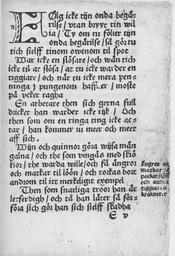 FOlg icke tijn onda begä-
rilse / vtan bryt tin wil
ia / Ty om tu följer tijn
onda begärilse / så gör tu
tich sielff tinom owenom til spott
War icke en slösare / och wän tich
icke til at slösa / at tu icke warder en
tiggiare / och när tu icke mera pen-
ninga i pungenom haffuer / moste
på ocker tagha
En arbetare then sich gerna full
dricker han warder icke rijk / Och
then som en ringa ting icke ac-
tar / han kommer ju meer och meer
aff sich.
Wijn och quinnor göra wijsa män
galna / och the som vmgås med skö-
kior / the warda wille / och få ångror
och matkar til löön / och torkas bort
androm til itt merkeligit exempel
Then som snarliga troor han är
letferdigh / och tå han låter så för-
föra sich gör han sich sielff skadha
E v
ångror och
matkar
och
tiggiare